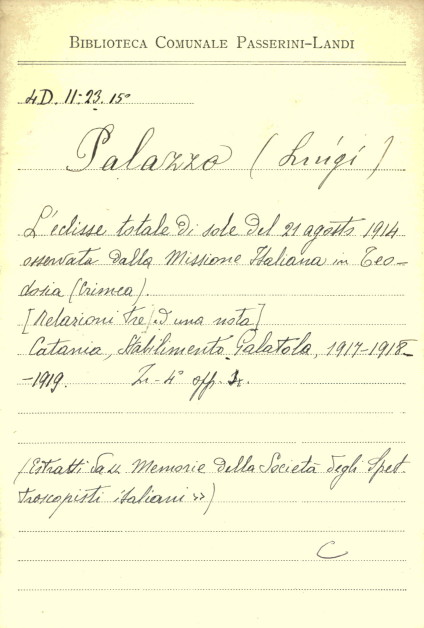 BIBLIOTECA COMUNALE PASSERINI-LANDI
4D. II-23. 15°
Palazzo (Luigi)
L'eclisse totale di sole del 21 agosto 1914
osservata dalla Missione Italiana in Teo-
dosia (Crimea).
[Relazioni tre ed una nota]
Catania, Stabilimento Galatola, 1917-1918-
-1919. In-4° opp.
(Estratti da << Memorie della Società degli Spet.
troscopisti italiani >>)
C